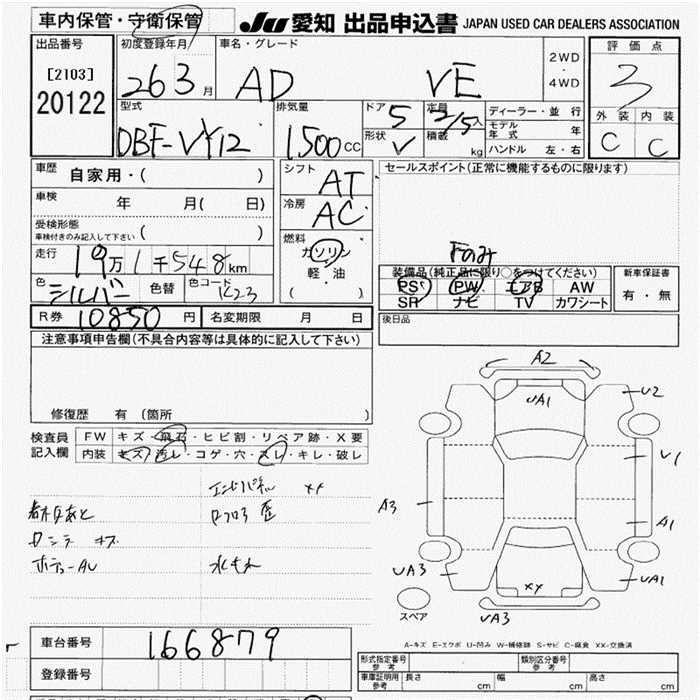 車内保管・守衛保管
JU 愛知 出品申込書 JAPAN USED CAR DEALERS ASSOCIATION
出品番号
[2103]
20122
初度登録年月
26 3 月
車名・グレード
AD VE
2WD
・
4WD
評価点
3
外装 内装
C C
型式
DBF-VY12
排気量
1500 CC
ドア 5
形状 V
定員 2/5 人
積載 kg
ディーラー・並行
モデル年式 年
ハンドル 左・右
車歴
自家用・( )
車検 年 月( 日)
受検形態
車検付きのみ記入して下さい ( )
走行
19万 1千548km
色 シルバー 色替 色コード K23
シフト
AT
冷房
AC
燃料
ガソリン
軽・油
( )
セールスポイント(正常に機能するものに限ります)
Fのみ
装備品(純正品に限り○をつけてください)
PS PW エアB AW
SR ナビ TV カワシート
新車保証書
有・無
R券 10850 円 名変期限 月 日
後日品
注意事項申告欄(不具合内容等は具体的に記入して下さい)
修復歴 有 (箇所 )
検査員
記入欄
FW キズ・飛石・ヒビ割・リペア跡・X要
内装 キズ・汚レ・コゲ・穴・スレ・キレ・破レ
エンドパネル XX
荷台あと
ロフロア 歪
キズ
ボデーAU
水もれ
A2
UA1
U2
U1
A3
A1
UA3
XX
UA1
UA3
スペア
A-キズ E-エクボ U-凹み W-補修跡 S-サビ C-腐食 XX-交換済
車台番号 166879
登録番号
形式指定番号
参考
類別区分番号
参考
車庫証明用
参考
長さ cm 幅 cm 高さ cm